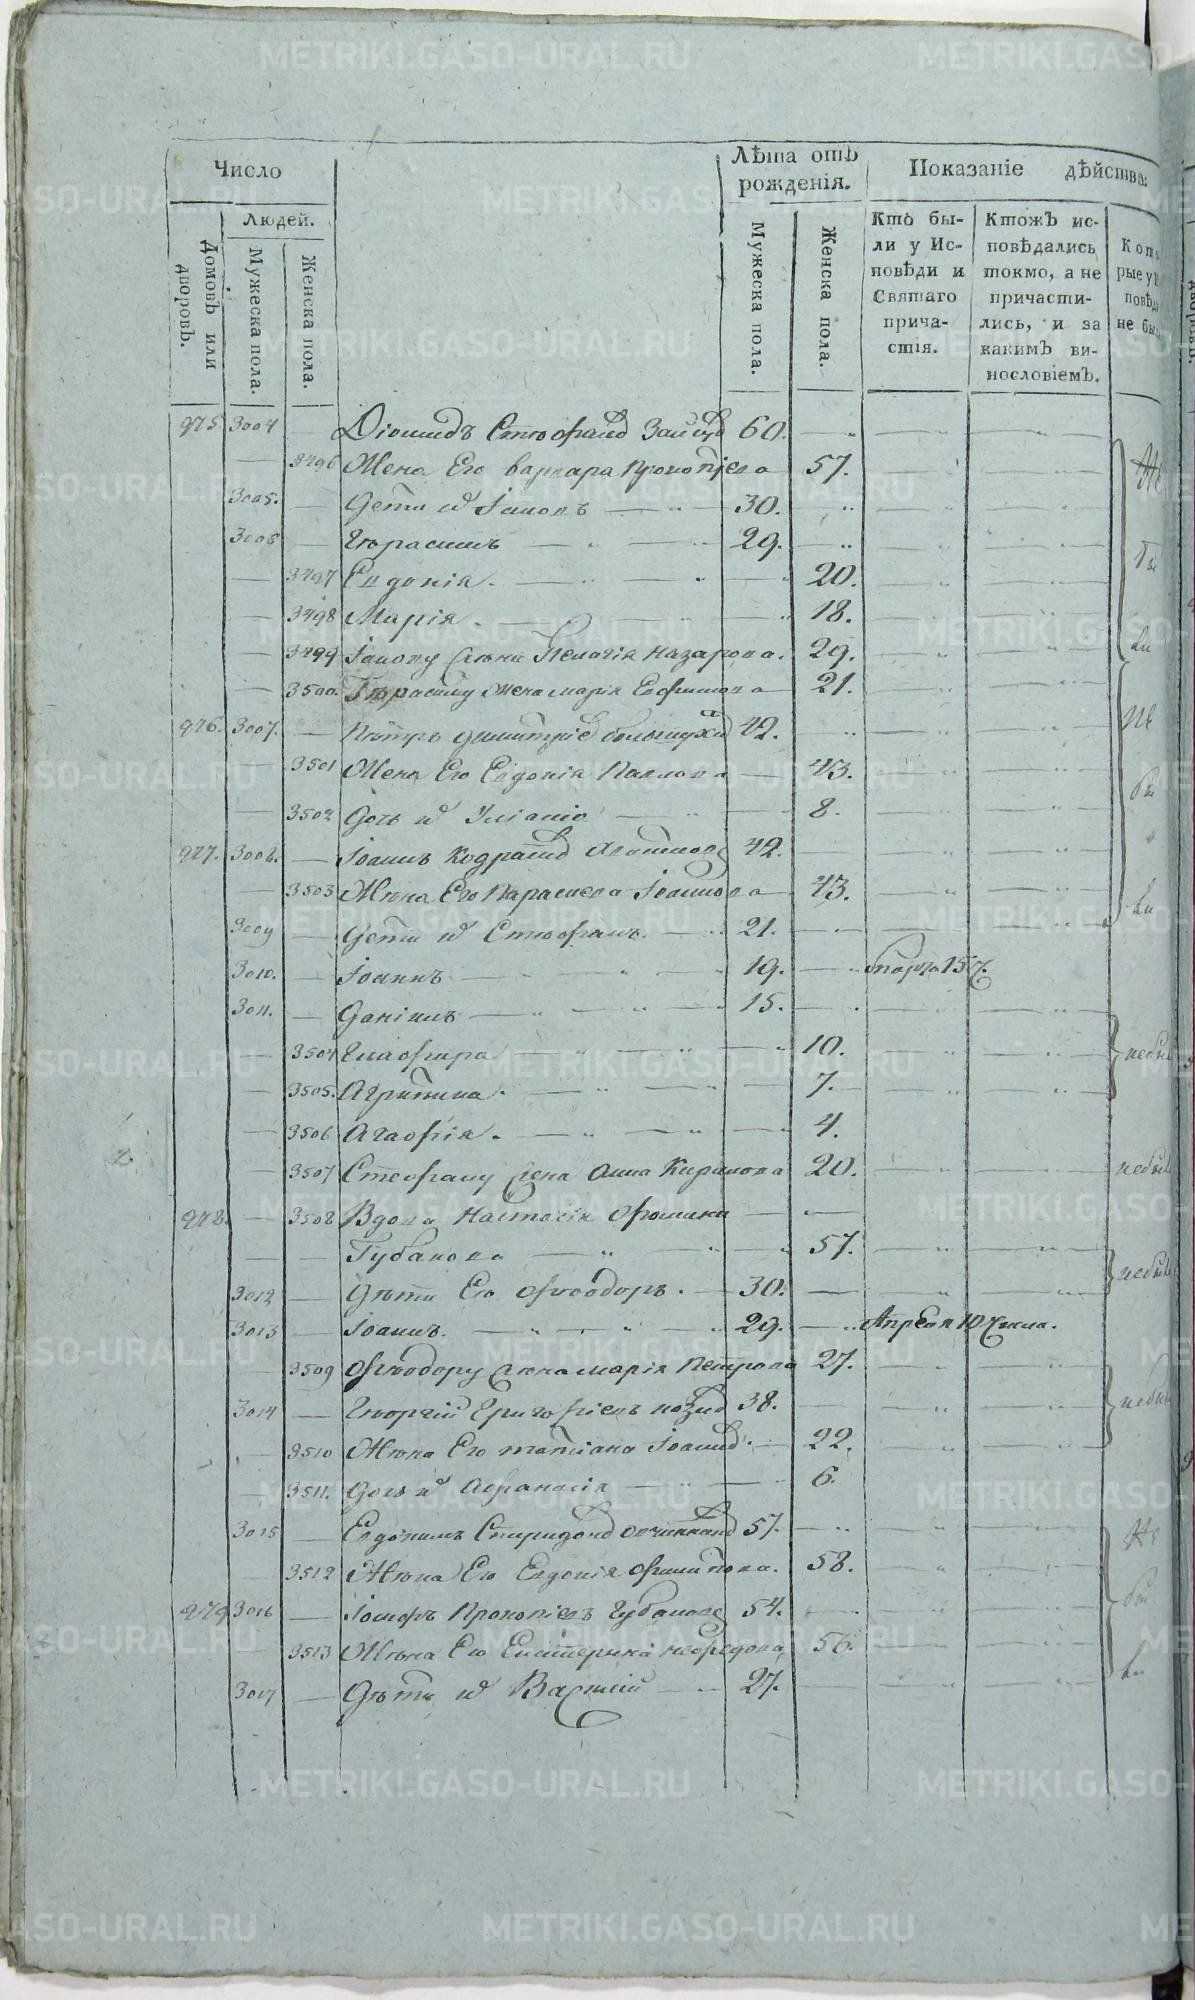 METRIKI.GASO-URAL.RU
Число
Лѣта отъ рожденія.
Показаніе дѣйства:
Домовъ или дворовъ.
Людей.
Мужеска пола.
Женска пола.
Мужеска пола.
Женска пола.
Кто бы-
ли у Ис-
повѣди и
Святаго
прича-
стія.
Ктожъ ис-
повѣдались
токмо, а не
причасти-
лись, и за
какимъ ви-
нословіемъ.
Кото
рые у
повѣд
не бы
975. 3004 — Діомидъ Стефанов Зайцов 60.
— 3496 Жена Его варвара Прокопіева 57.
3005. — Дети их 30.
3006 — Герасимъ 29.
— 3497 Евдокія. 20.
— 3498 Марія. 18.
— 3499 жена Пелагія Назарова. 29.
— 3500. Герасиму жена марія Ефимова 21.
976. 3007. — Петръ димитріев 42.
— 3501 Жена Его Евдокія Павлова 43.
— 3502 Дочь их Уліанія 8.
977. 3008. — Іоаннъ 42.
— 3503 Жена Его Параскева Іоаннова 43.
3009 — Дети их Стефанъ. 21.
3010. — Іоаннъ 19. марта 15 ч.
3011. — Даніилъ 15.
— 3504 Глафира 10.
— 3505. Агрипина. 7.
— 3506 Агафія. 4.
— 3507 Стефану жена Анна Кирилова 20.
978. — 3508 Вдова Настасія фомина
Губанова 57.
3012 — Дети Ея феодоръ. 30.
3013 — Іоаннъ. 29. Апреля 10 числа.
3509 феодору жена марія Петрова 27.
3014 — Георгій Григоріевъ 38.
3510 Жена Его татіана Іоаннов. 22.
3511. Дочь их Афанасія 6.
3015 — Евдокимъ Спиридонов Овчинников 57.
3512 Жена Его Евдокія филипова. 58.
979 3016 — Іосифъ Прокопіевъ Губановъ 54.
3513 Жена Его Екатерина 56.
3017 — Дети их Василій 27.